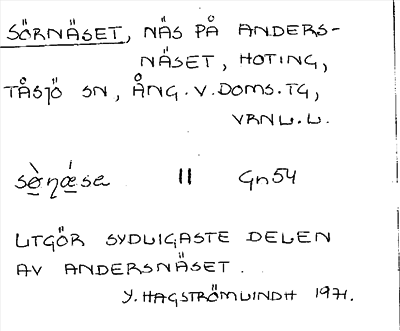 SÖRNÄSET, NÄS PÅ ANDERS-
NÄSET, HOTING,
TÅSJÖ SN, ÅNG.V.DOMS.TG,
VRNL.L.
sø̀ɳǽsa II Gn54
UTGÖR SYDLIGASTE DELEN
AV ANDERSNÄSET.
Y. HAGSTRÖMLINDH 1971.